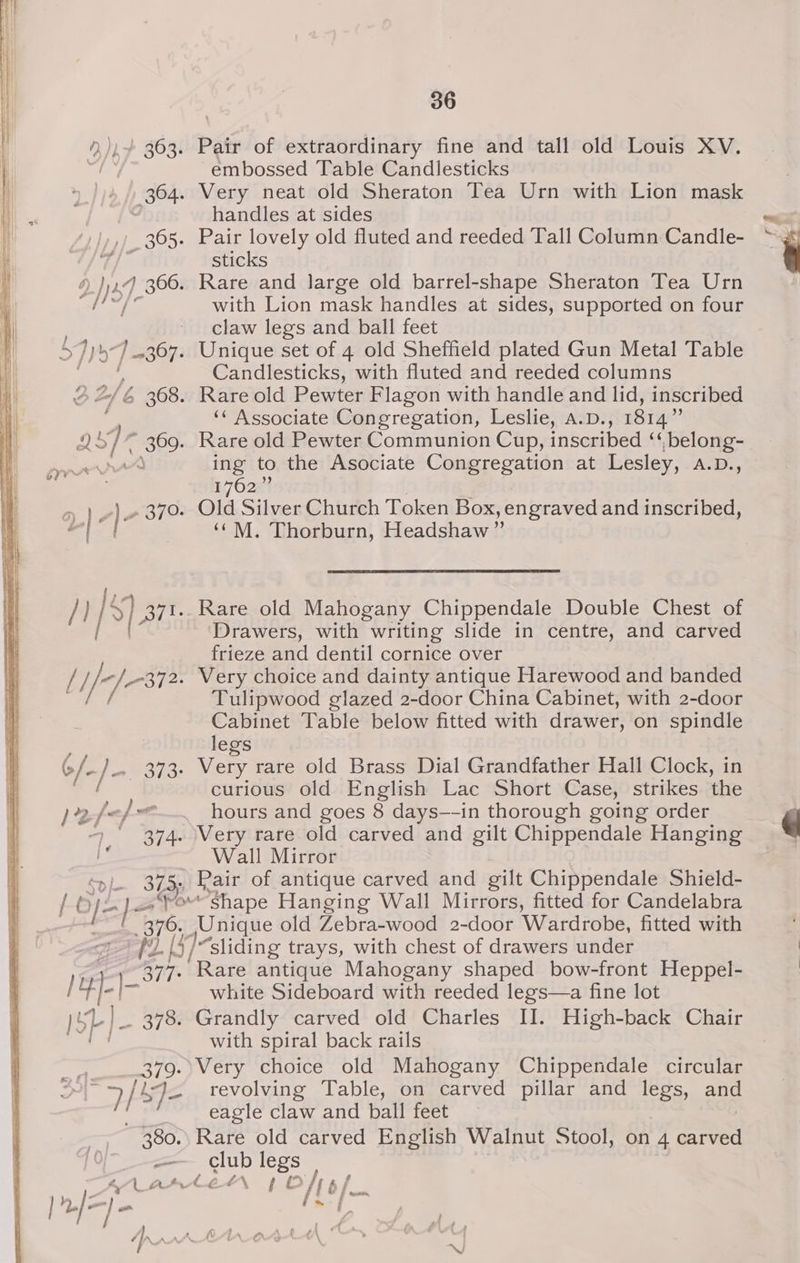 36
363. Pair of extraordinary fine and tall old Louis XV.
embossed Table Candlesticks
364. Very neat old Sheraton Tea Urn with Lion mask
handles at sides
365. Pair lovely old fluted and reeded Tall Column Candle-
sticks
366. Rare and large old barrel-shape Sheraton Tea Urn
with Lion mask handles at sides, supported on four
claw legs and ball feet
367. Unique set of 4 old Sheffield plated Gun Metal Table
Candlesticks, with fluted and reeded columns
2 2/6 368. Rare old Pewter Flagon with handle and lid, inscribed
“Associate Congregation, Leslie, A.D., 1814”
25/- 369. Rare old Pewter Communion Cup, inscribed “belong-
ing to the Asociate Congregation at Lesley, A.D.,
1762”
370. Old Silver Church Token Box, engraved and inscribed,
“M. Thorburn, Headshaw”
371. Rare old Mahogany Chippendale Double Chest of
Drawers, with writing slide in centre, and carved
frieze and dentil cornice over
372. Very choice and dainty antique Harewood and banded
Tulipwood glazed 2-door China Cabinet, with 2-door
Cabinet Table below fitted with drawer, on spindle
legs
6/-/- 373. Very rare old Brass Dial Grandfather Hall Clock, in
curious old English Lac Short Case, strikes the
12/-/- hours and goes 8 days—in thorough going order
374. Very rare old carved and gilt Chippendale Hanging
Wall Mirror
375. Pair of antique carved and gilt Chippendale Shield-
10/-/- shape Hanging Wall Mirrors, fitted for Candelabra
376. Unique old Zebra-wood 2-door Wardrobe, fitted with
sliding trays, with chest of drawers under
377. Rare antique Mahogany shaped bow-front Heppel-
14/-/- white Sideboard with reeded legs—a fine lot
15/-/- 378. Grandly carved old Charles II. High-back Chair
with spiral back rails
379. Very choice old Mahogany Chippendale circular
revolving Table, on carved pillar and legs, and
eagle claw and ball feet
380. Rare old carved English Walnut Stool, on 4 carved
club legs
12/-/-